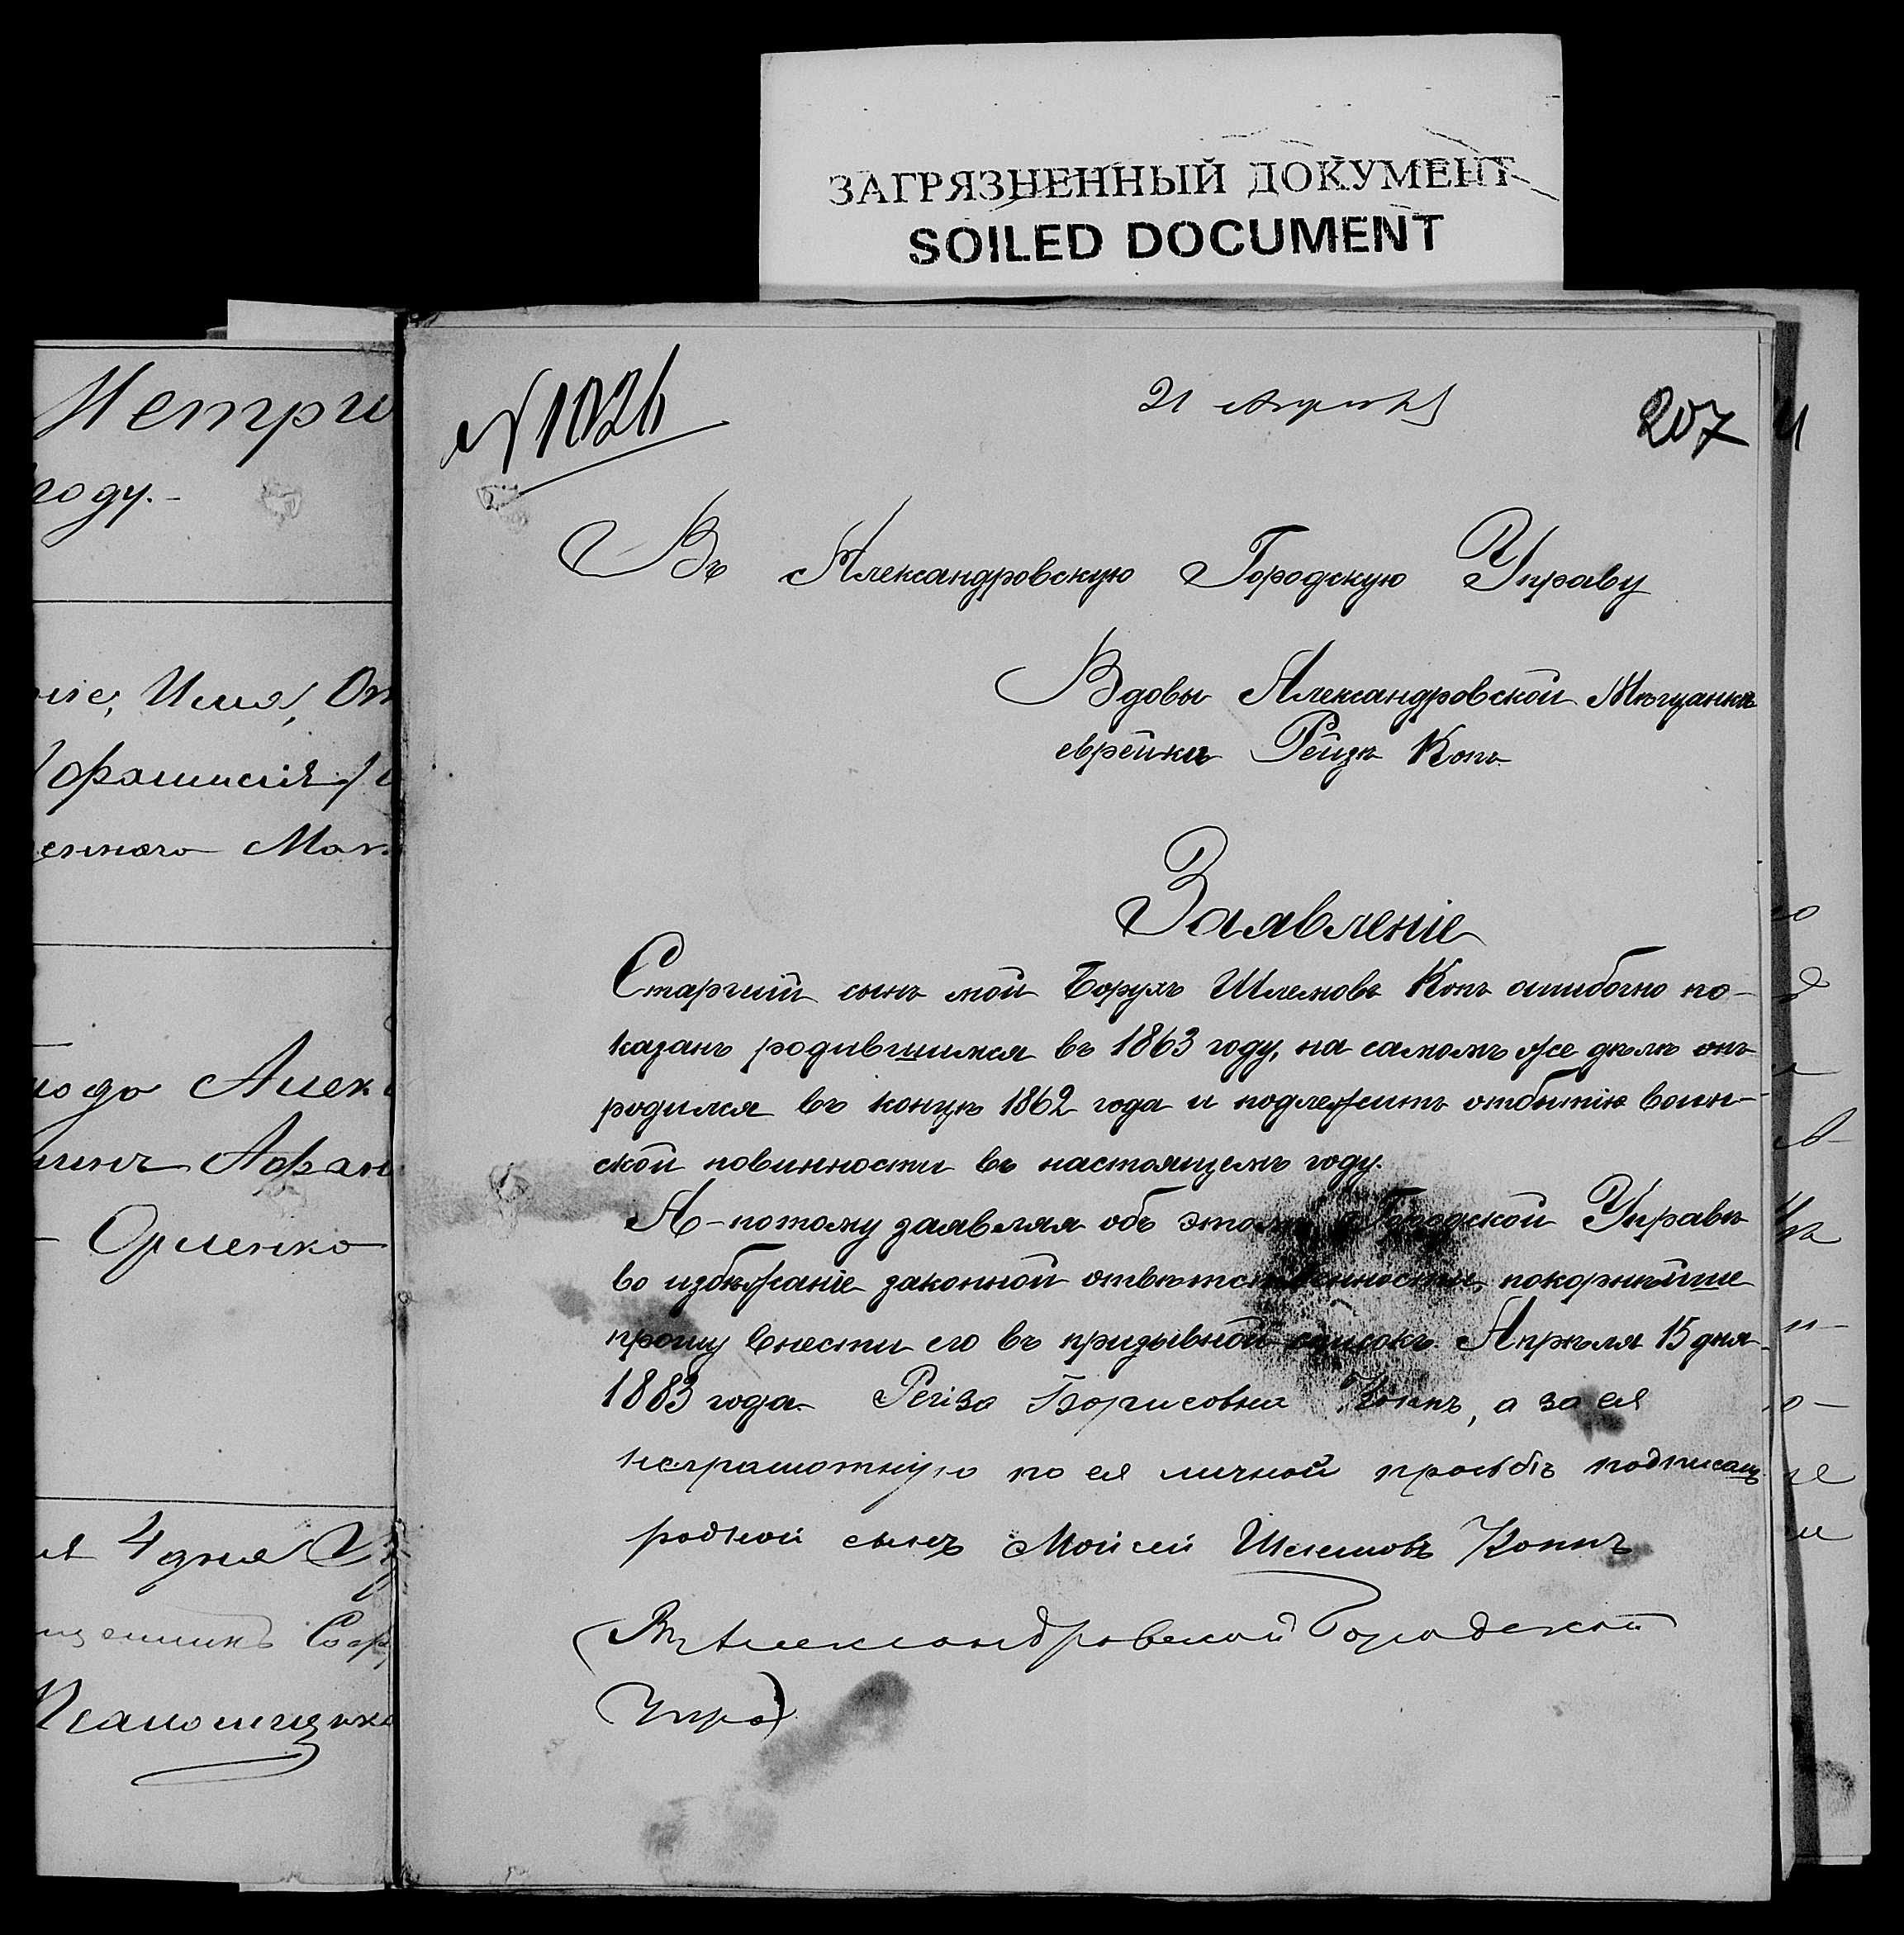 ЗАГРЯЗНЕННЫЙ ДОКУМЕНТ
SOILED DOCUMENT
Метри
году.-
Имя, От
4 дня
№ 1026
21 Апреля
207
Въ Александровскую Городскую Управу
Вдовы Александровской Мѣщанки
еврейки Рейзи Копъ
Заявленіе
Старшій сынъ мой Борухъ Шлемовъ Копъ ошибочно по-
казанъ родившимся въ 1863 году, на самомъ же дѣлѣ онъ
родился въ концѣ 1862 года и подлежитъ отбытію воин-
ской повинности въ настоящемъ году.
А-потому заявляя объ этомъ Городской Управѣ
во избѣжаніе законной отвѣтственности, покорнѣйше
прошу внести его въ призывной списокъ. Апрѣля 15 дня
1883 года. Рейза Борисовна Коппъ, а за ея
неграмотную по ея личной просьбѣ подписалъ
родной сынъ Мойсей Шлемовъ Коппъ
(Въ Александровской Городской
Упра)